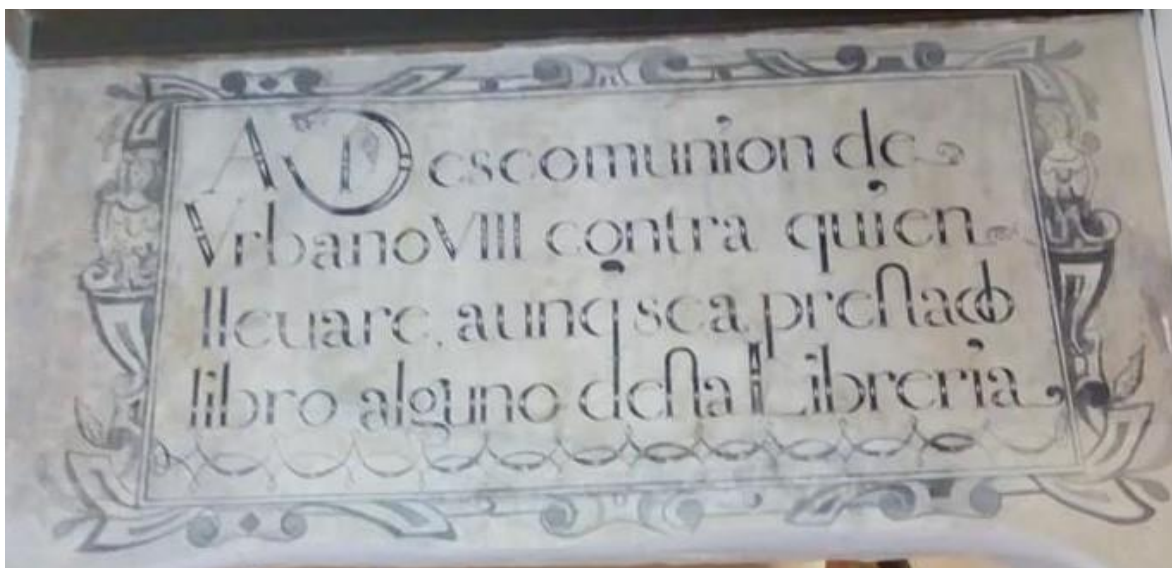 AD escomunion de
Vrbano VIII contra quien
lleuare, aunq sea, prestado
libro alguno desta Libreria